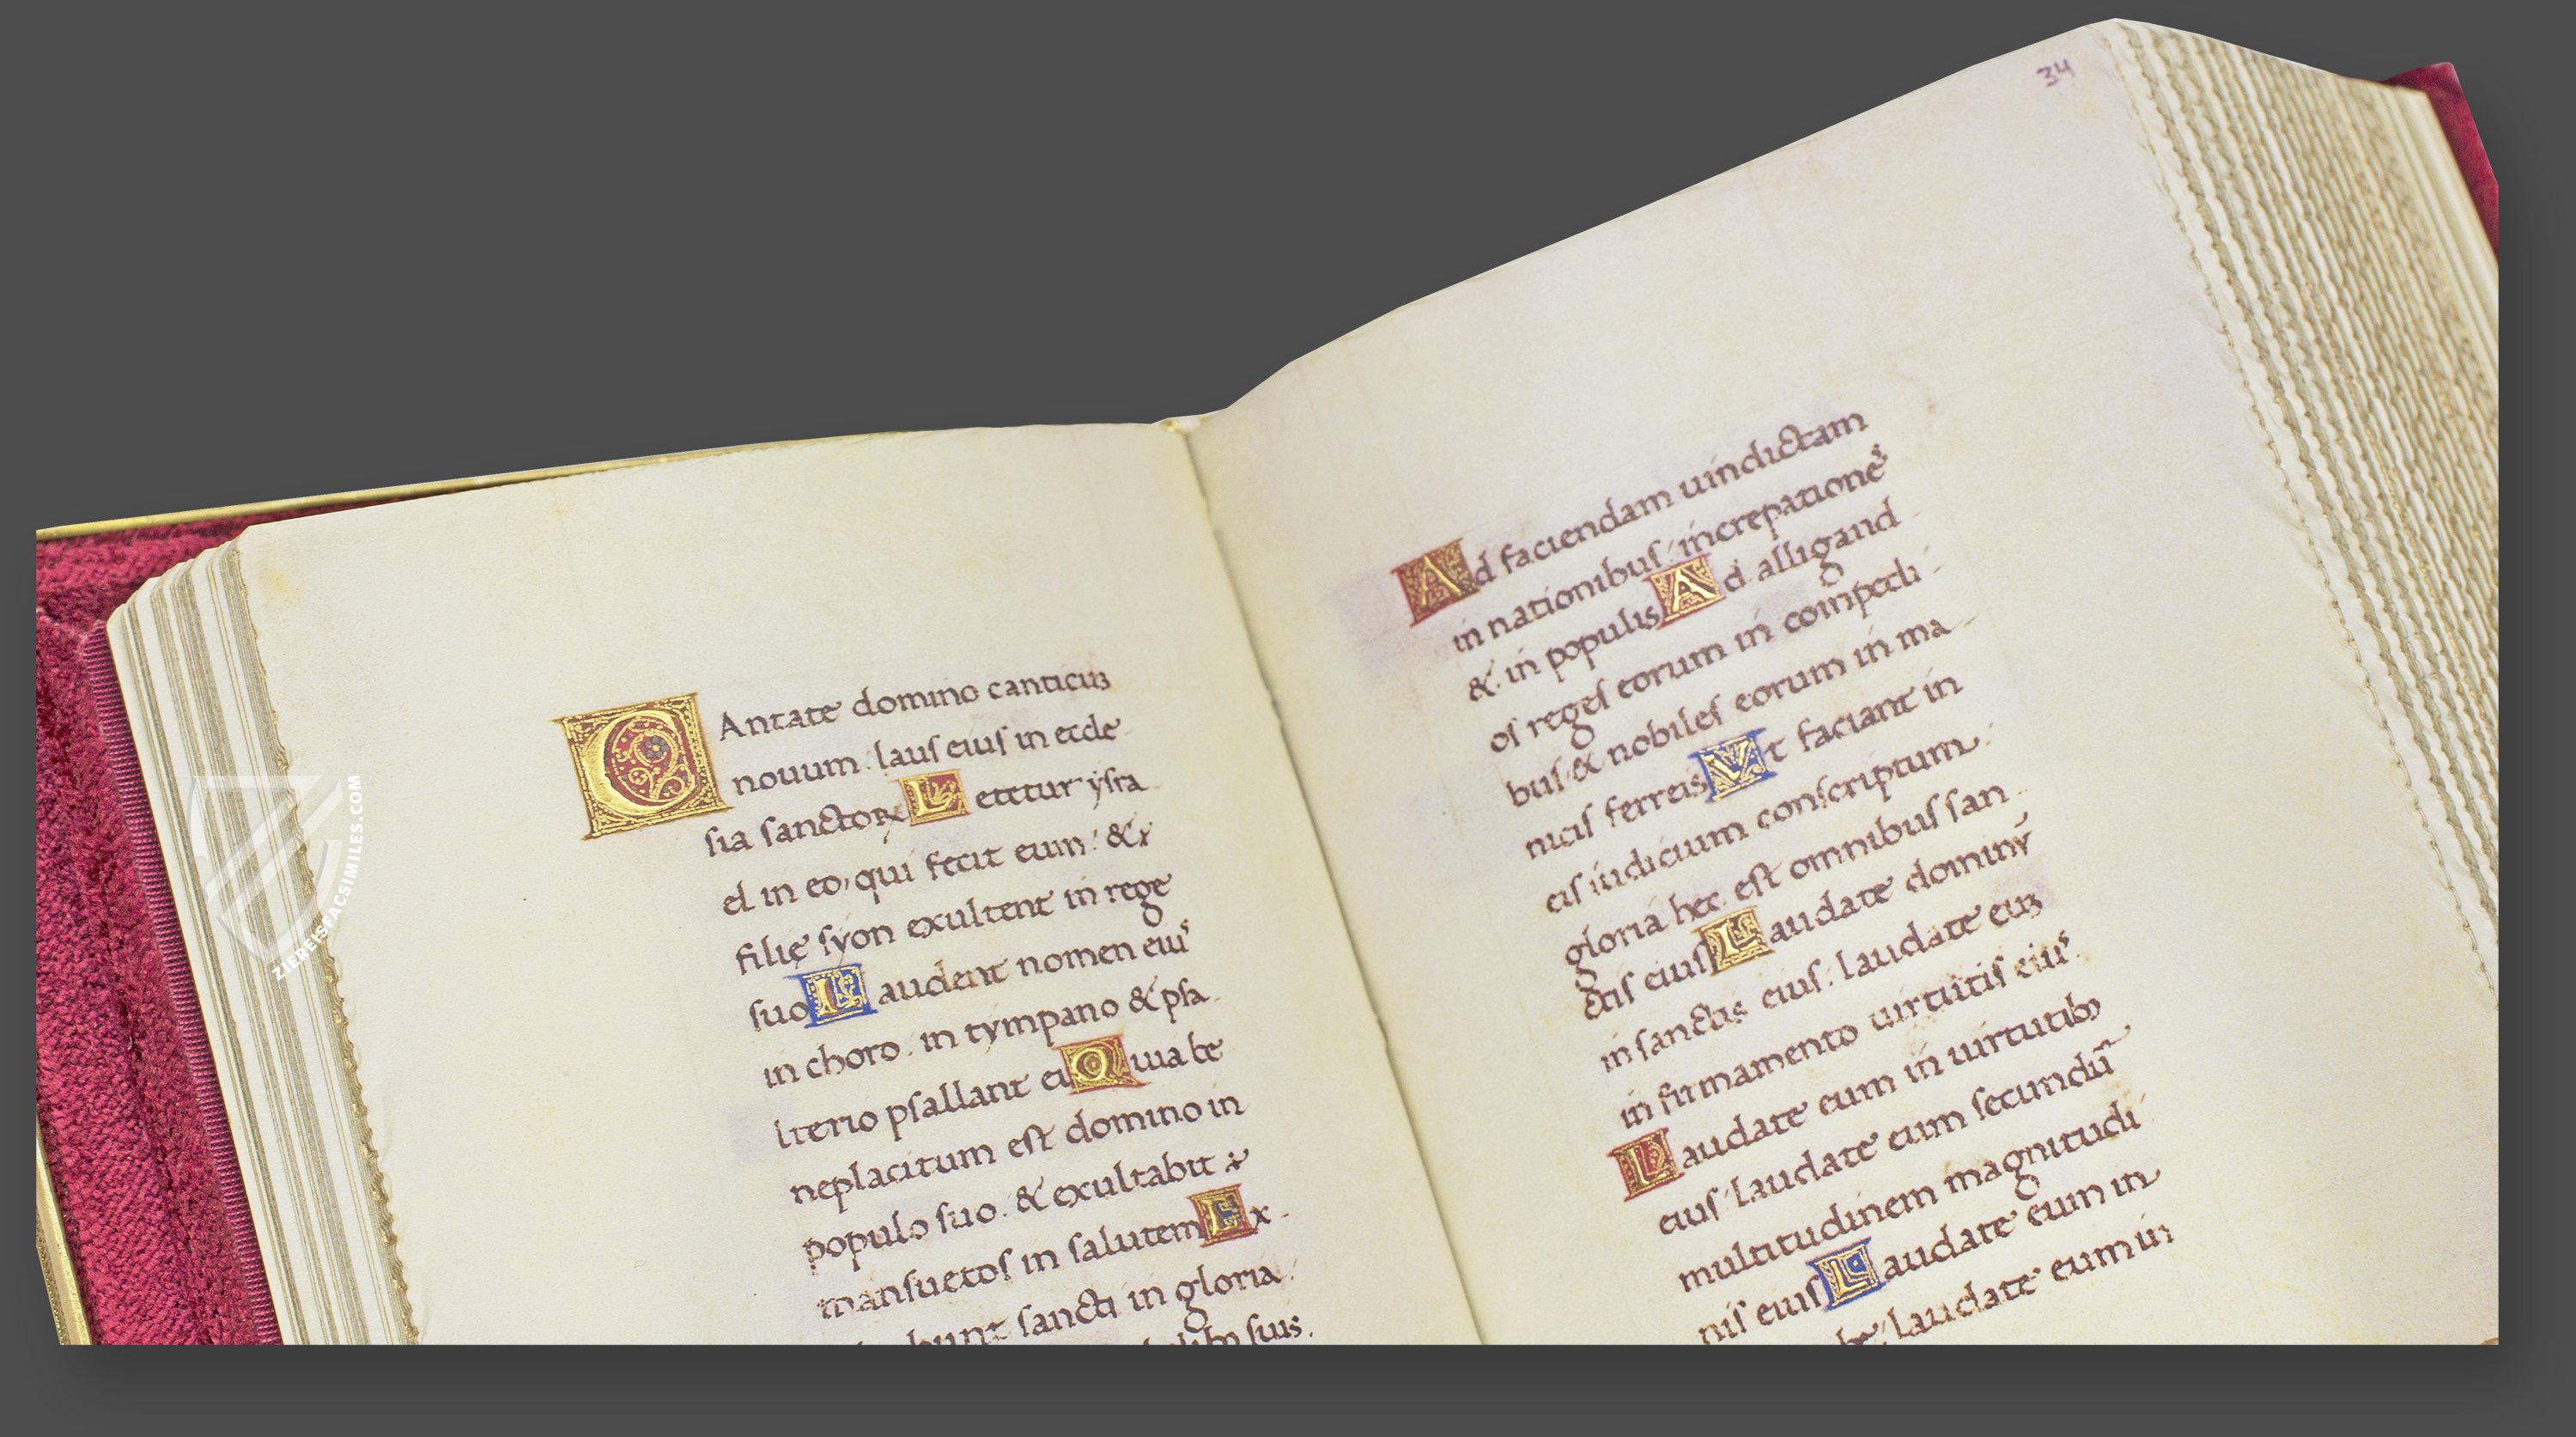 CAntate domino canticuʒ
nouum: lauſ eiuſ in eccle
ſia ſanctoꝝ Letetur ẏſra
el in eo, qui fecit eum: &
filię ſyon exultent in rege
ſuo Laudent nomen eiuſ
in choro. in tympano & pſa
lterio pſallant ei Quia be
neplacitum eſt domino in
populo ſuo. & exultabit
manſuetoſ in ſalutem Ex
bunt ſancti in gloria:
ſuis.
34
Ad faciendam uindictam
in nationibuſ: increpationeſ
& in populis Ad alligand
oſ regeſ eorum in compedi
buſ: & nobileſ eorum in ma
niciſ ferreis Vt faciant in
eiſ iudicium conſcriptum:
gloria hec eſt omnibuſ ſan
ctiſ eiuſ Laudate dominỹ
in ſanctis eiuſ: laudate euʒ
in firmamento uirtutiſ eiuſ
Laudate eum in uirtutibꝫ
eiuſ: laudate eum ſecundũ
multitudinem magnitudi
niſ eiuſ Laudate eum in
laudate eum in
ZIEREISFACSIMILES.COM